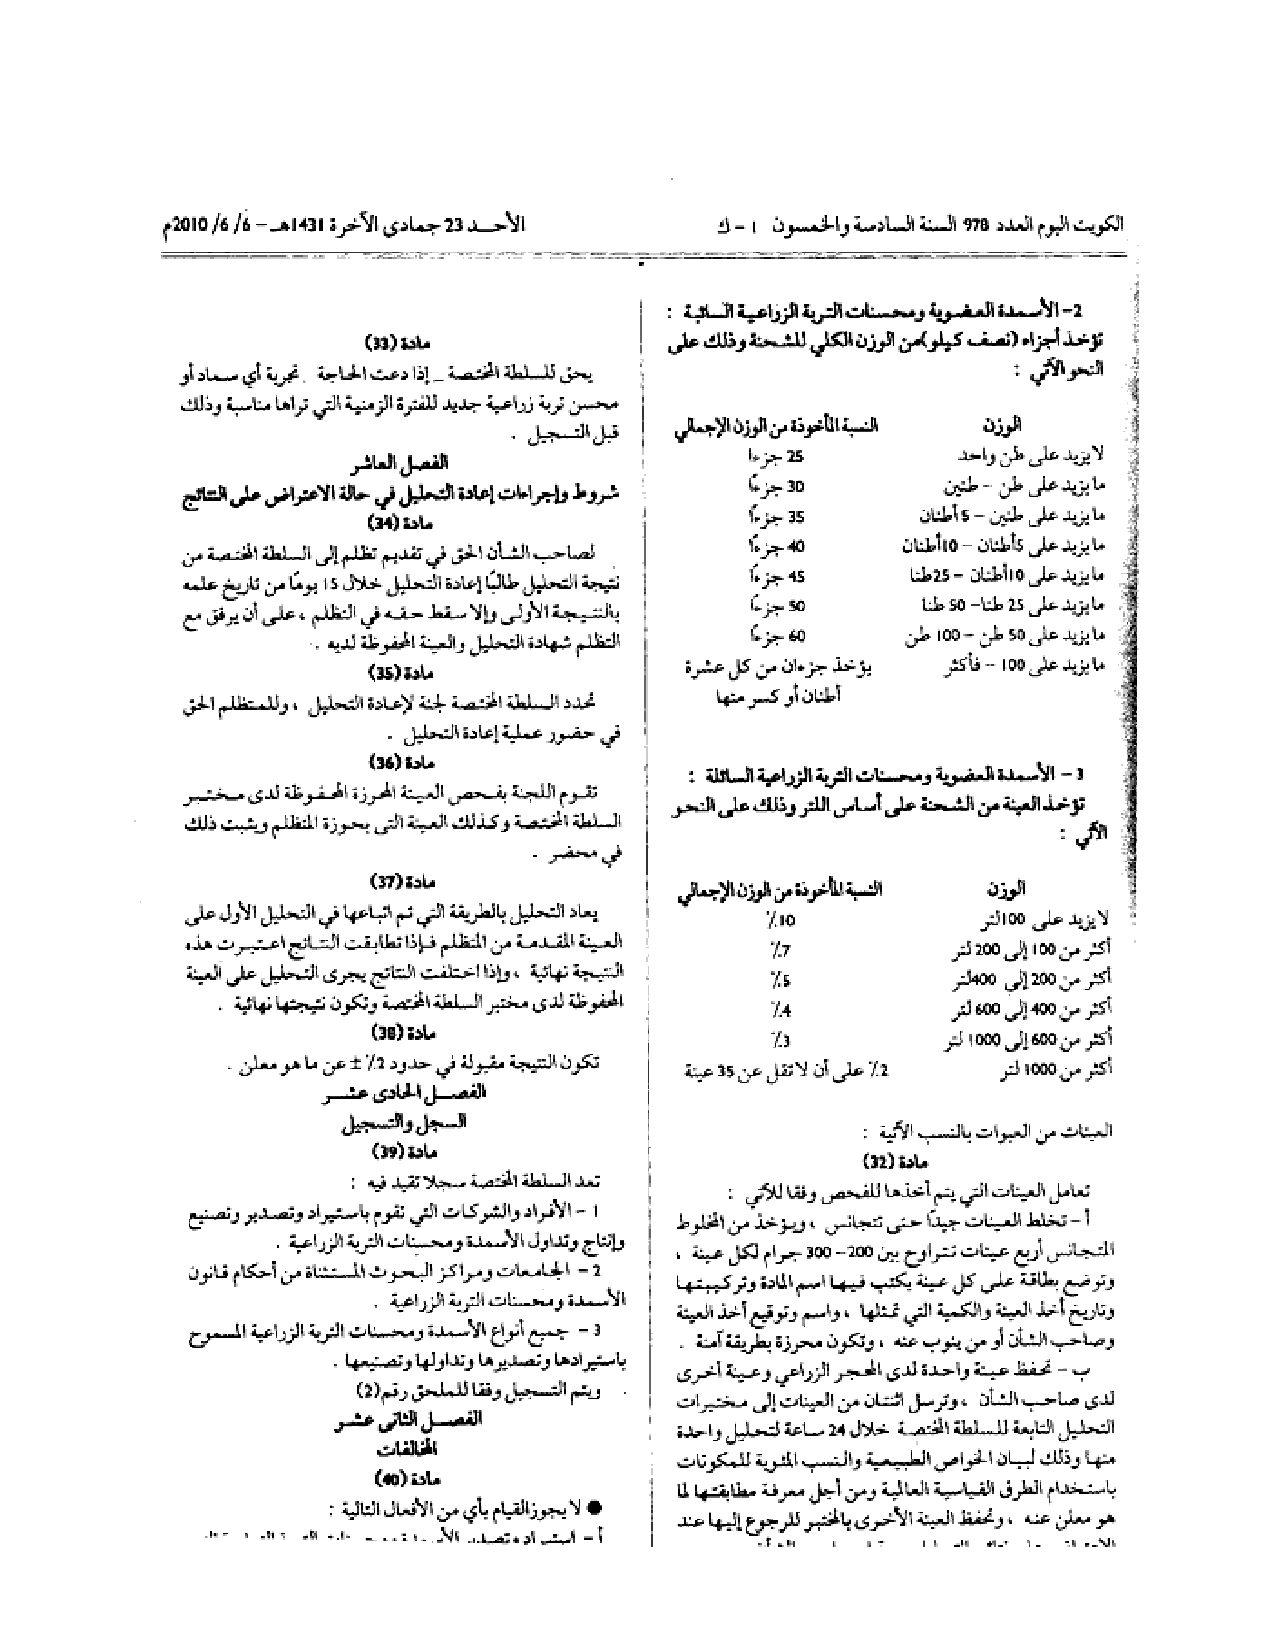 الكويت اليوم العدد 978 السنة السادسة والخمسون ١ - ك
الأحــد 23 جمادى الآخرة 1431هـ - 6/ 6/ 2010م
2- الأسمدة العضوية ومحسنات التربة الزراعية السائبة :
تؤخذ أجزاء (نصف كيلو)من الوزن الكلي للشحنة وذلك على
النحو الآتي :
الوزن النسبة المأخوذة من الوزن الإجمالي
لا يزيد على طن واحد 25 جزءا
ما يزيد على طن - طنين 30 جزءًا
ما يزيد على طنين - 5 أطنان 35 جزءًا
ما يزيد على 5أطنان - 10أطنان 40 جزءًا
ما يزيد على 10أطنان - 25طنا 45 جزءًا
ما يزيد على 25 طنا- 50 طنا 50 جزءًا
ما يزيد على 50 طن - 100 طن 60 جزءًا
ما يزيد على 100 - فأكثر يؤخذ جزءان من كل عشرة
أطنان أو كسر منها
3 - الأسمدة العضوية ومحسنات التربة الزراعية السائلة :
تؤخذ العينة من الشحنة على أساس اللتر وذلك على النحو
الآتي :
الوزن النسبة المأخوذة من الوزن الإجمالي
لا يزيد على 100لتر 10٪
أكثر من 100 إلى 200 لتر 7٪
أكثر من 200 إلى 400لتر 5٪
أكثر من 400 إلى 600 لتر 4٪
أكثر من 600 إلى 1000 لتر 3٪
أكثر من 1000 لتر 2٪ على أن لا تقل عن 35 عينة
العينات من العبوات بالنسب الآتية :
مادة (32)
تعامل العينات التي يتم أخذها للفحص وفقا للآتي :
أ - تخلط العينات جيدًا حتى تتجانس ، ويؤخذ من المخلوط
المتجانس أربع عينات تتراوح بين 200- 300 جرام لكل عينة ،
وتوضع بطاقة على كل عينة يكتب فيها اسم المادة وتركيبتها
وتاريخ أخذ العينة والكمية التي تمثلها ، واسم وتوقيع أخذ العينة
وصاحب الشأن أو من ينوب عنه ، وتكون محرزة بطريقة آمنة .
ب - تحفظ عينة واحدة لدى المحجر الزراعي وعينة أخرى
لدى صاحب الشأن ، وترسل اثنتان من العينات إلى مختبرات
التحليل التابعة للسلطة المختصة خلال 24 ساعة لتحليل واحدة
منها وذلك لبيان الخواص الطبيعية والنسب المئوية للمكونات
باستخدام الطرق القياسية العالمية ومن أجل معرفة مطابقتها لما
هو معلن عنه ، وتحفظ العينة الأخرى بالمختبر للرجوع إليها عند
مادة (33)
يحق للسلطة المختصة _ إذا دعت الحاجة _ تجربة أي سماد أو
محسن تربة زراعية جديد للفترة الزمنية التي تراها مناسبة وذلك
قبل التسجيل .
الفصل العاشر
شروط وإجراءات إعادة التحليل في حالة الاعتراض على النتائج
مادة (34)
لصاحب الشأن الحق في تقديم تظلم إلى السلطة المختصة من
نتيجة التحليل طالبًا إعادة التحليل خلال 15 يومًا من تاريخ علمه
بالنتيجة الأولى وإلا سقط حقه في التظلم ، على أن يرفق مع
التظلم شهادة التحليل والعينة المحفوظة لديه .
مادة (35)
تحدد السلطة المختصة لجنة لإعادة التحليل ، وللمتظلم الحق
في حضور عملية إعادة التحليل .
مادة (36)
تقوم اللجنة بفحص العينة المحرزة المحفوظة لدى مختبر
السلطة المختصة وكذلك العينة التي بحوزة المتظلم ويثبت ذلك
في محضر .
مادة (37)
يعاد التحليل بالطريقة التي تم اتباعها في التحليل الأول على
العينة المقدمة من المتظلم فإذا تطابقت النتائج اعتبرت هذه
النتيجة نهائية ، وإذا اختلفت النتائج يجرى التحليل على العينة
المحفوظة لدى مختبر السلطة المختصة وتكون نتيجتها نهائية .
مادة (38)
تكون النتيجة مقبولة في حدود 2٪ ± عن ما هو معلن .
الفصــل الحادى عشــر
السجل والتسجيل
مادة (39)
تعد السلطة المختصة سجلا تقيد فيه :
1 - الأفراد والشركات التي تقوم باستيراد وتصدير وتصنيع
وإنتاج وتداول الأسمدة ومحسنات التربة الزراعية .
2 - الجامعات ومراكز البحوث المستثناة من أحكام قانون
الأسمدة ومحسنات التربة الزراعية .
3 - جميع أنواع الأسمدة ومحسنات التربة الزراعية المسموح
باستيرادها وتصديرها وتداولها وتصنيعها .
ويتم التسجيل وفقا للملحق رقم (2)
الفصــل الثانى عشــر
المخالفات
مادة (40)
● لا يجوز القيام بأي من الأفعال التالية :